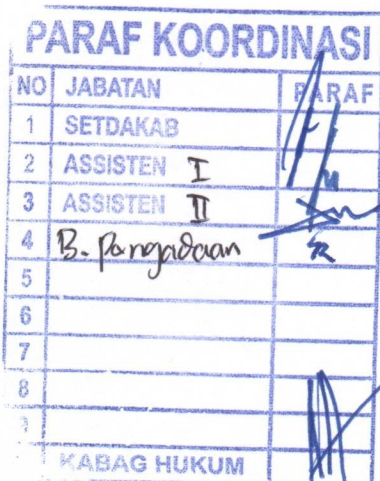 PARAF KOORDINASI
NO JABATAN PARAF
1 SETDAKAB
2 ASSISTEN I
3 ASSISTEN II
4 B. Pengadaan
5
6
7
8
9
KABAG HUKUM